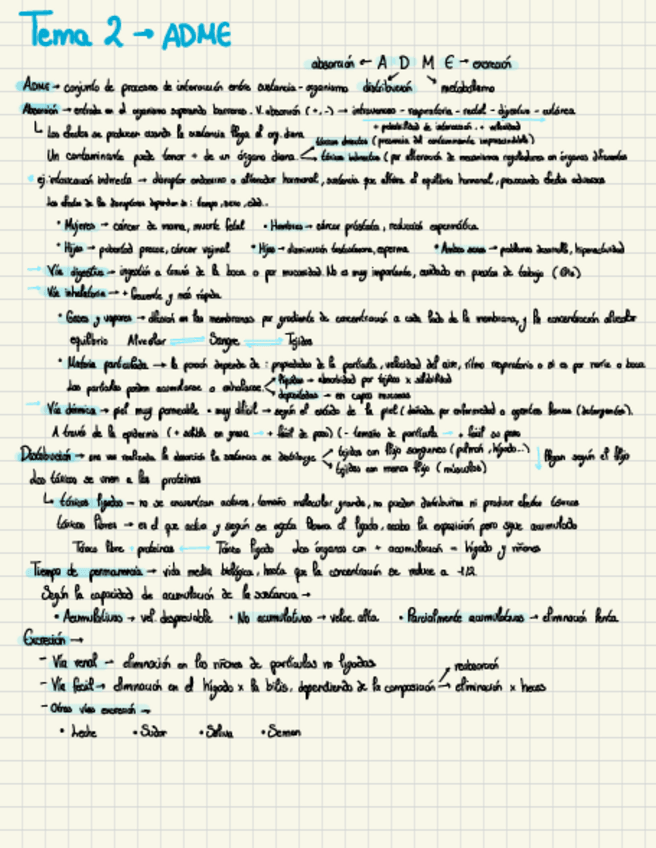 Tema 2 → ADME
absorción ← A D M E → excreción
ADME → conjunto de procesos de interacción entre sustancia - organismo distribución metabolismo
Absorción → entrada en el organismo superando barreras. V. absorción (+, -) → intravenosa - respiratoria - rectal - digestiva - cutánea
+ probabilidad de interacción . + velocidad
Los efectos se producen cuando la sustancia llega al org. diana
tóxicos directos (presencia del contaminante imprescindible)
Un contaminante puede tener + de un órgano diana
tóxicos indirectos (por alteración de mecanismos reguladores en órganos diferentes
ej. intoxicación indirecta → disruptor endocrino o alterador hormonal, sustancia que altera el equilibrio hormonal, provocando efectos adversos
Los efectos de los disruptores dependen de : tiempo, sexo, edad..
• Mujeres → cáncer de mama, muerte fetal • Hombres → cáncer próstata, reducción espermática.
• Hijas → pubertad precoz, cáncer vaginal • Hijos → disminución testosterona, esperma. • Ambos sexos → problemas desarrollo, hiperactividad
→ Vía digestiva → ingestión a través de la boca o por mucosidad. No es muy importante, cuidado en puestos de trabajo
→ Vía inhalatoria → + frecuente y más rápida.
• Gases y vapores → difusión en las membranas por gradiente de concentración a cada lado de la membrana, y la concentración alveolar
equilibrio Alveolar Sangre Tejidos
• Materia particulada → la porción depende de : propiedades de la partícula, velocidad del aire, ritmo respiratorio o si es por nariz o boca
Las partículas pueden acumularse o exhalarse
líquidas → absorbidad por tejidos x solubilidad
depositadas → en capas mucosas
→ Vía dérmica → piel muy permeable • muy difícil → según el estado de la piel (dañada por enfermedad o agentes (detergentes).
A través de la epidermis (+ soluble en grasa → + fácil de paso) (- tamaño de partícula → + fácil su paso
Distribución → una vez realizada la absorción la sustancia se distribuye
tejidos con flujo sanguíneo (pulmón, hígado..)
tejidos con menos flujo (músculos)
↓ llegan según el flujo
Los tóxicos se unen a las proteínas
tóxicos ligados → no se encuentran activos, tamaño molecular grande, no pueden distribuirse ni producir efectos tóxicos
tóxicos libres → es el que actúa y según se agota libera el ligado, acaba la exposición pero sigue acumulado
Tóxico libre + proteínas Tóxico ligado Los órganos con + acumulación = hígado y riñones
Tiempo de permanencia → vida media biológica, hasta que la concentración se reduce a 1/2
Según la capacidad de acumulación de la sustancia →
• Acumulativos → vel. despreciable • No acumulativos → veloc. alta. • Parcialmente acumulativos → eliminación lenta.
Excreción →
- Vía renal → eliminación en los riñones de partículas no ligadas
reabsorción
- Vía fecal → eliminación en el hígado x la bilis, dependiendo de la composición → eliminación x heces
- Otras vías excreción →
• Leche • Sudor • Saliva • Semen